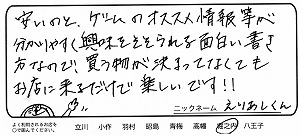 安いのと、ゲームのオススメ情報等が
分かりやすく興味をそそられる面白い書き
方なので、買う物が決まってなくても
お店に来るだけで楽しいです!!
ニックネーム えりあしくん
よく利用されるお店を
○で囲んでください。
立川 小作 羽村 昭島 青梅 高幡 堀之内 八王子